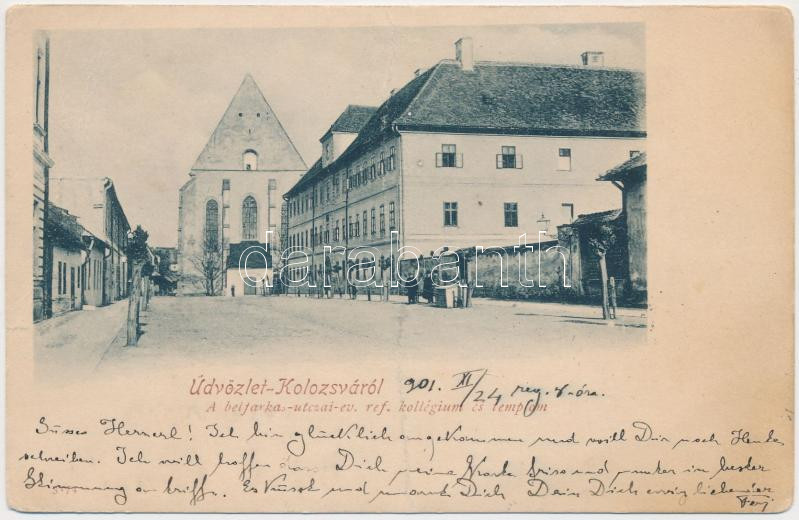 darabanth
Üdvözlet-Kolozsváról 901. XI/24 reg. 8-óra.
A belfarkas-utczai-ev. ref. kollégium és templom
Süsses Herzerl! Ich bin glücklich angekommen und will Dir noch Heute
schreiben. Ich will hoffen dass Dich meine Karte frisch und munter in bester
Stimmung an triffst. Es küsst und umarmt Dich Dein Dich ewig liebender